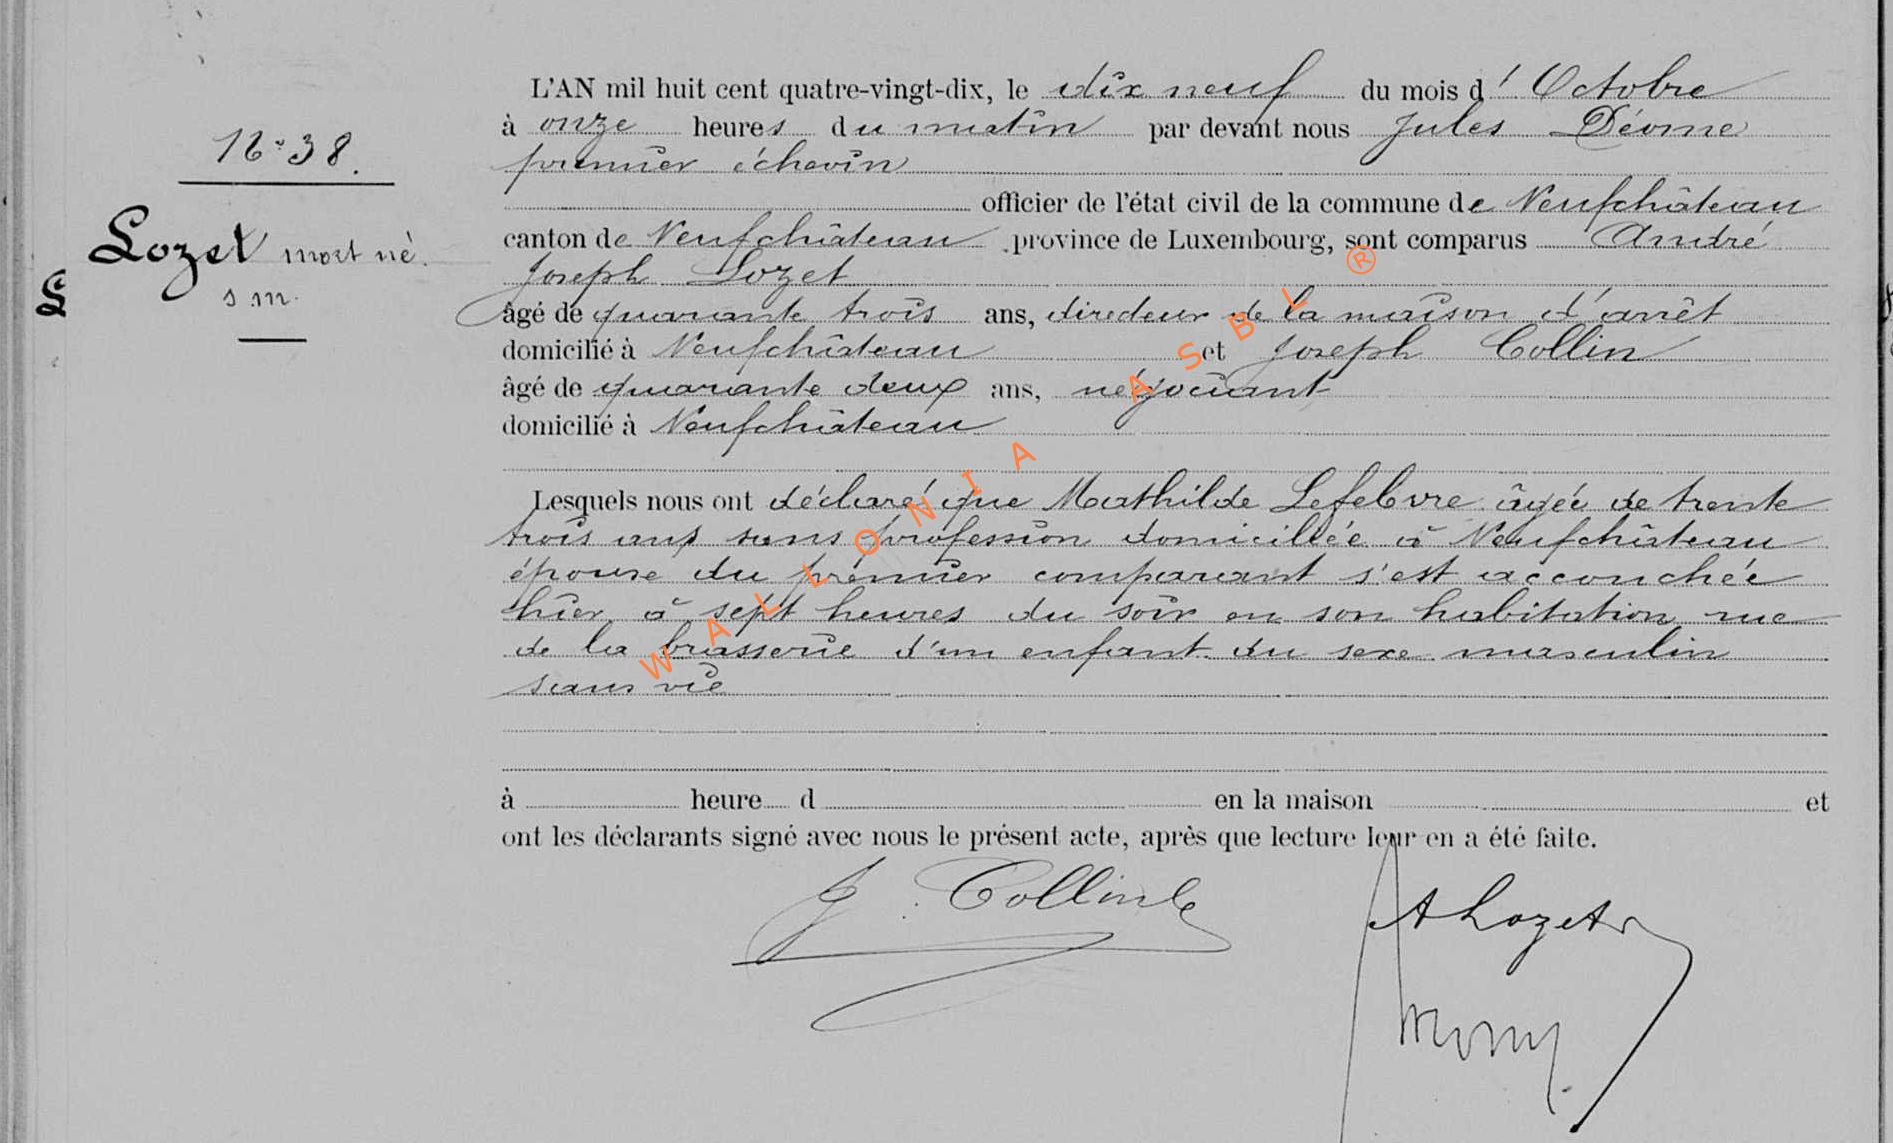 N° 38.
Lozet mort né.
s m.
L'AN mil huit cent quatre-vingt-dix, le dix neuf du mois d' Octobre
à onze heures du matin par devant nous Jules Déome
premier échevin
officier de l'état civil de la commune de Neufchâteau
canton de Neufchâteau province de Luxembourg, sont comparus André
Joseph Lozet
âgé de quarante trois ans, directeur de la maison d'arrêt
domicilié à Neufchâteau et Joseph Collin
âgé de quarante deux ans, négociant
domicilié à Neufchâteau
Lesquels nous ont déclaré que Mathilde Lefebvre âgée de trente
trois ans sans profession domiciliée à Neufchâteau
épouse du premier comparant s'est accouchée
hier à sept heures du soir en son habitation rue
de la brasserie d'un enfant du sexe masculin
sans vie
à heure d en la maison et
ont les déclarants signé avec nous le présent acte, après que lecture leur en a été faite.
J. Collin
A Lozet
WALLONIA ASBL ®